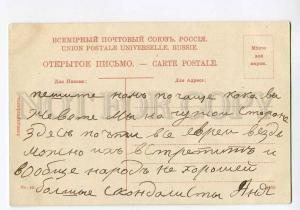 ВСЕМІРНЫЙ ПОЧТОВЫЙ СОЮЗЪ. РОССІЯ.
UNION POSTALE UNIVERSELLE. RUSSIE.
ОТКРЫТОЕ ПИСЬМО. — CARTE POSTALE.
Мѣсто
для
марки.
Для Письма:
Для Адреса:
пешите намъ почаще какъ вы
живете Мы на чужой стороне
здесь почти все евреи везде
можно ихъ встретить и
вообще народъ не хорошей
большие скандалисты